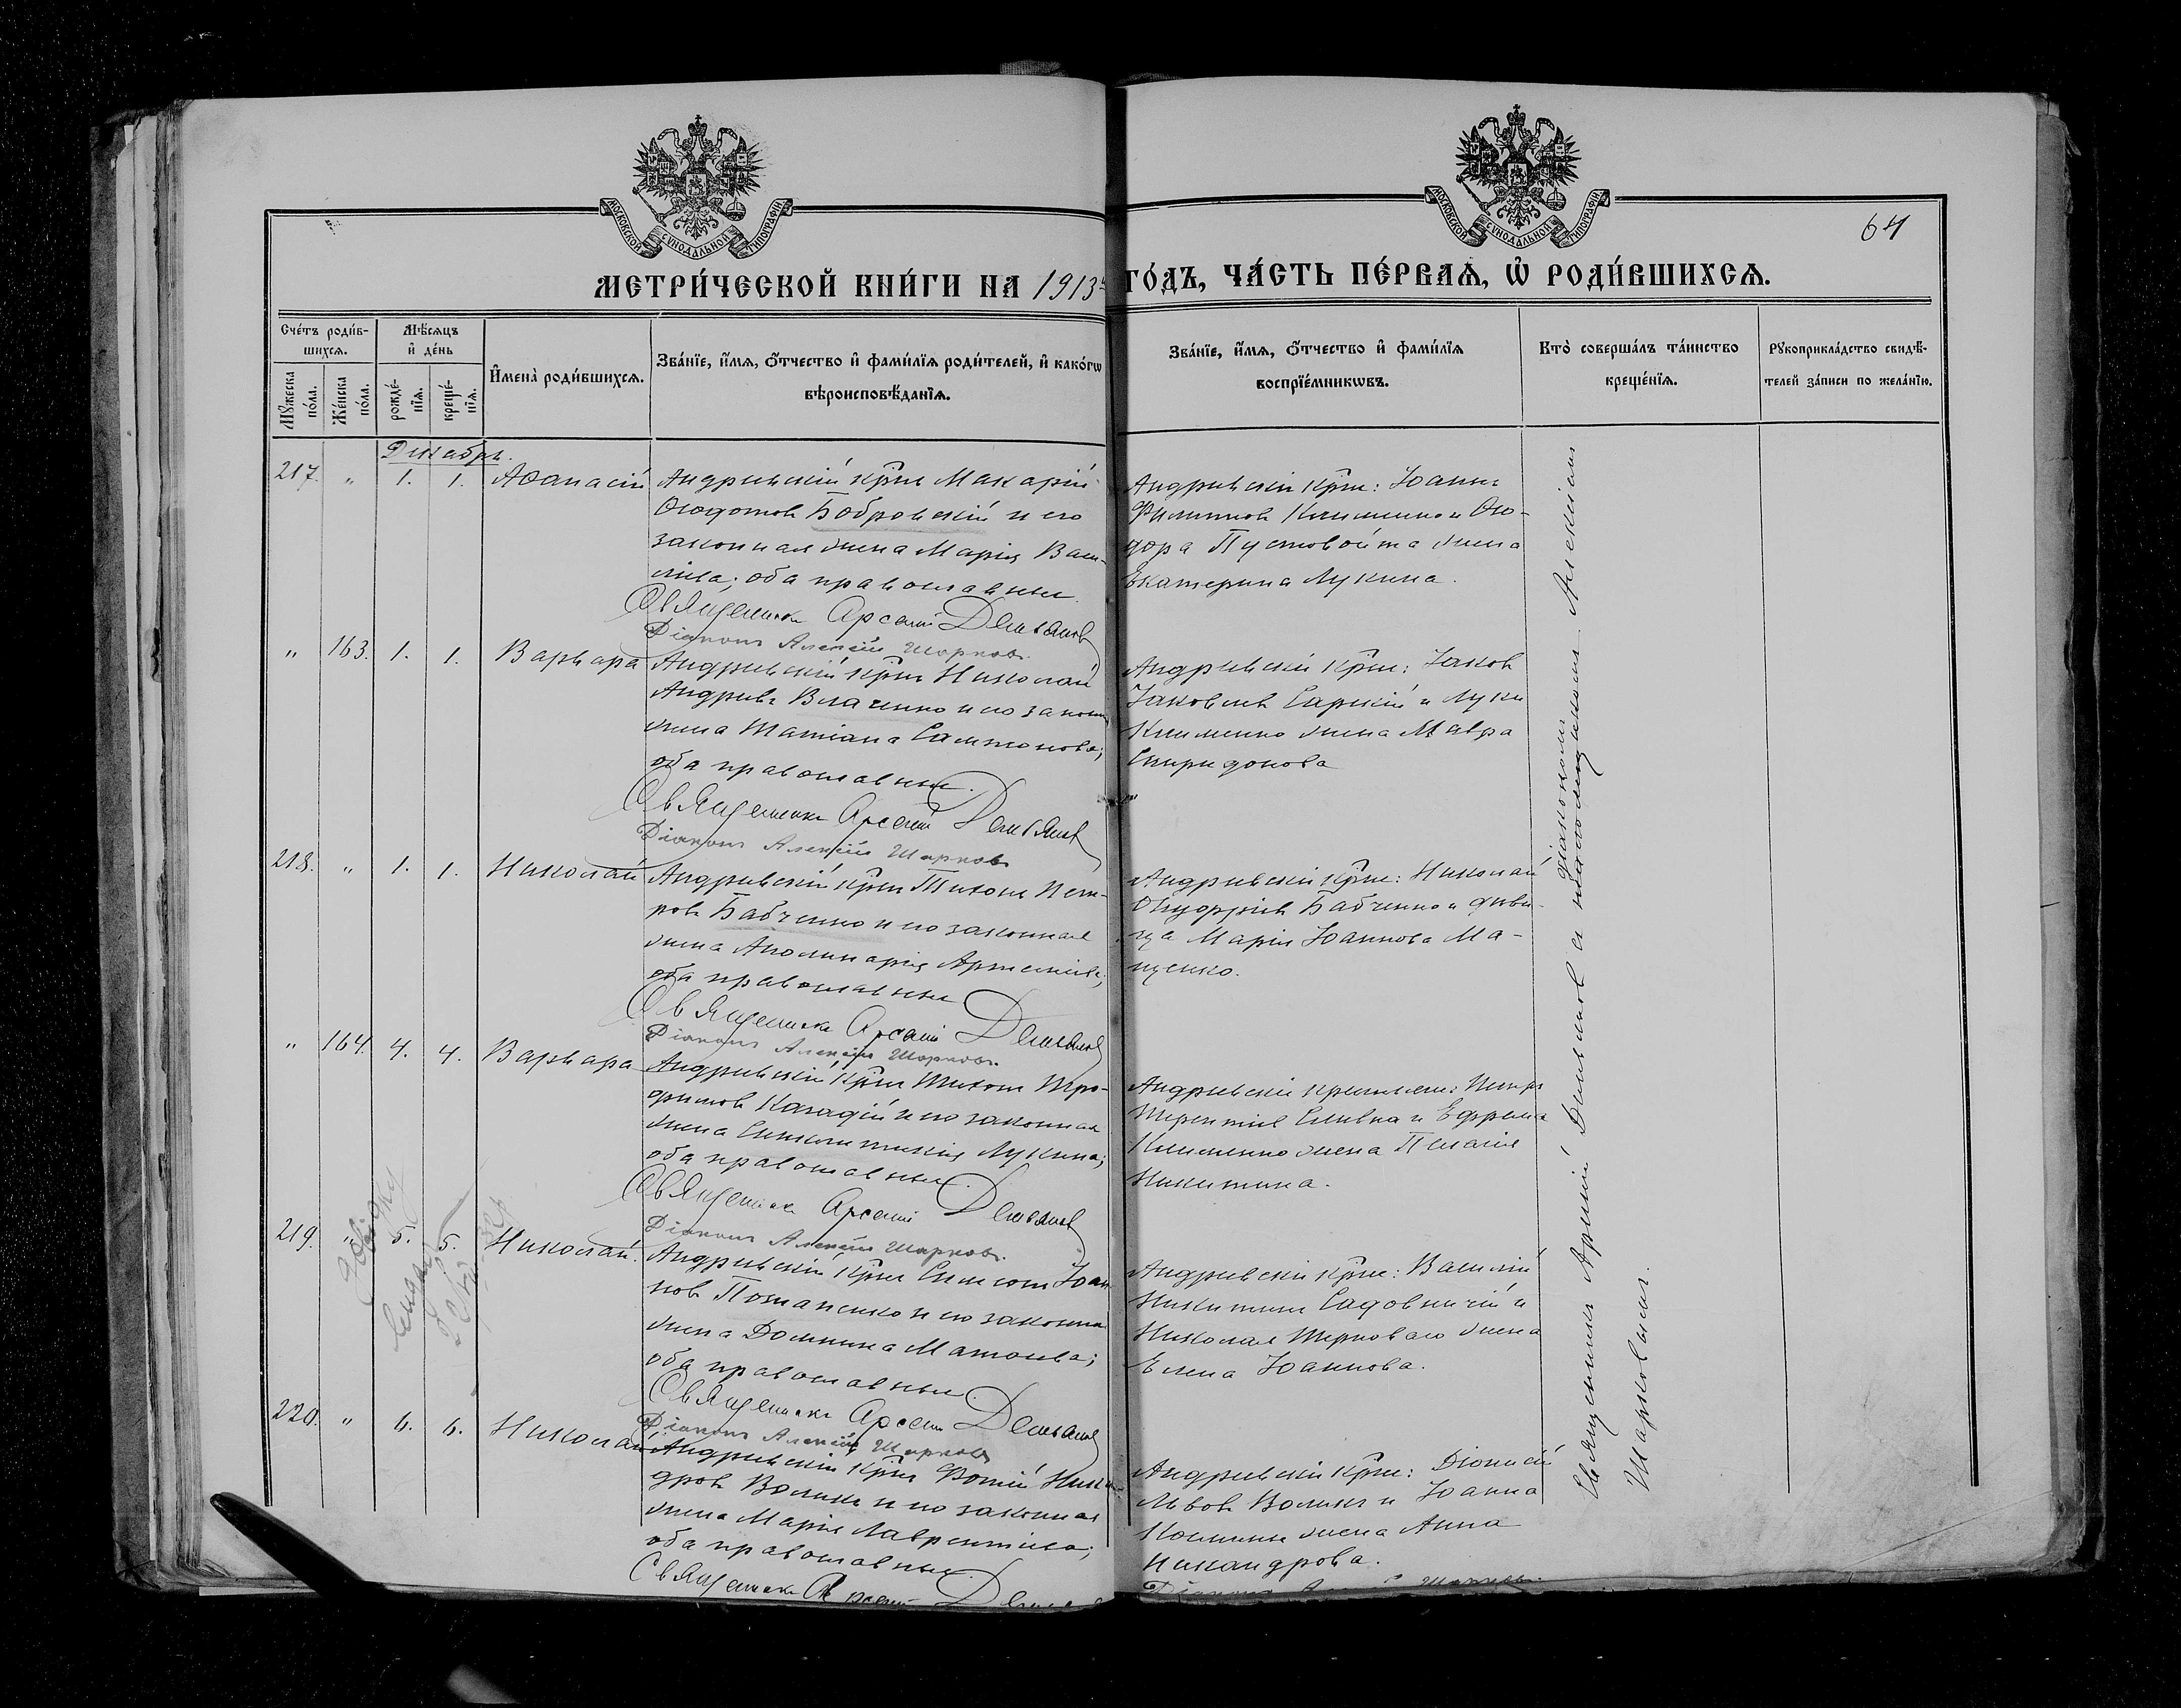 МОСКОВСКОЙ СУНОДАЛЬНОЙ ТИПОГРАФІИ
МОСКОВСКОЙ СУНОДАЛЬНОЙ ТИПОГРАФІИ
64
МЕТРИ́ЧЕСКОЙ КНИ́ГИ НА 1913й ГО́ДЪ, ЧА́СТЬ ПЕ́РВАѦ, Ѡ҆ РОДИ́ВШИХСѦ.
Счéтъ роди́в-
шихсѧ.
Мꙋ́жеска
по́ла.
Же́нска
по́ла.
Мѣ́сѧцъ
и҆ де́нь
рожде́-
нїѧ.
креще́-
нїѧ.
И҆мена̀ роди́вшихсѧ.
Зва́нїе, и҆́мѧ, ѻ҆́тчество и҆ фами́лїѧ роди́телей, и҆ како́гѡ
вѣроисповѣ́данїѧ.
Зва́нїе, и҆́мѧ, ѻ҆́тчество и҆ фами́лїѧ
воспрїе́мникѡвъ.
Кто̀ соверша́лъ та́инство
креще́нїѧ.
Рꙋкоприкла́дство свидѣ́-
телей за́писи по жела́нїю.
Декабрь.
217. " 1. 1. Аѳанасій
Андреевскій крн Макарій
Ѳеодотовъ Бобровскій и его
законная жена Марія Васи-
лiева; оба православные.
Священникъ Арсеній Демьянов
Діаконъ Алексій Шарковъ.
Андреевскіи крне: Іоаннъ
Филиповъ Клименко и Ѳео-
дора Пустовойта жена
Екатерина Лукина.
" 163. 1. 1. Варвара
Андреевскій крн Николай
Андреевъ Власенко и его законн
жена Татіана Сампсонова;
оба православные.
Священникъ Арсеній Демьянов
Діаконъ Алексій Шарковъ
Андреевскіи крне: Іаковъ
Іаковлевъ Гарскій и Луки
Клименко жена Мавра
Спиридонова
218. " 1. 1. Николай
Андреевскій крн Тихонъ Пет-
ровъ Бабченко и его законная
жена Аполинарія Артеміева;
оба православные
Священникъ Арсеній Демьянов
Діаконъ Алексій Шарковъ.
Андреевскіи крне: Николай
Онуфріевъ Бабченко и деви-
ца Марія Іоаннова Ма-
щенко.
" 164. 4. 4. Варвара
Андреевскій крн Тихонъ Тро-
фимовъ Кагадій и его законная
жена Синклитикія Лукина;
оба православные.
Священникъ Арсеній Демьянов
Діаконъ Алексій Шарковъ.
Андреевскіи крестьяне: Петръ
Терентіев Сливка и Ефрема
Клименко жена Пелагія
Никитина.
219. " 5. 5. Николай.
Андреевскій крн Симеонъ Іоан-
новъ Потапенко и его законна
жена Домнина Матѳеева;
оба православные.
Священникъ Арсеній Демьянов
Діаконъ Алексій Шарковъ
Андреевскіи крне: Василій
Никитинъ Садовничій и
Николая Терноваго жена
Елена Іоаннова.
220. " 6. 6. Николай
Андреевскій крн Фотій Никан-
дровъ Воликъ и его законная
жена Марія Лаврентіева;
оба православные.
Священникъ Арсеній
Андреевскіи крне: Діонисій
Львовъ Воликъ и Іоанна
жена Анна
Никандрова.
Діаконъ Алексій Шарковъ.
Священникъ Арсеній Демьяновъ съ діакономъ Алексіемъ
Шарковымъ.